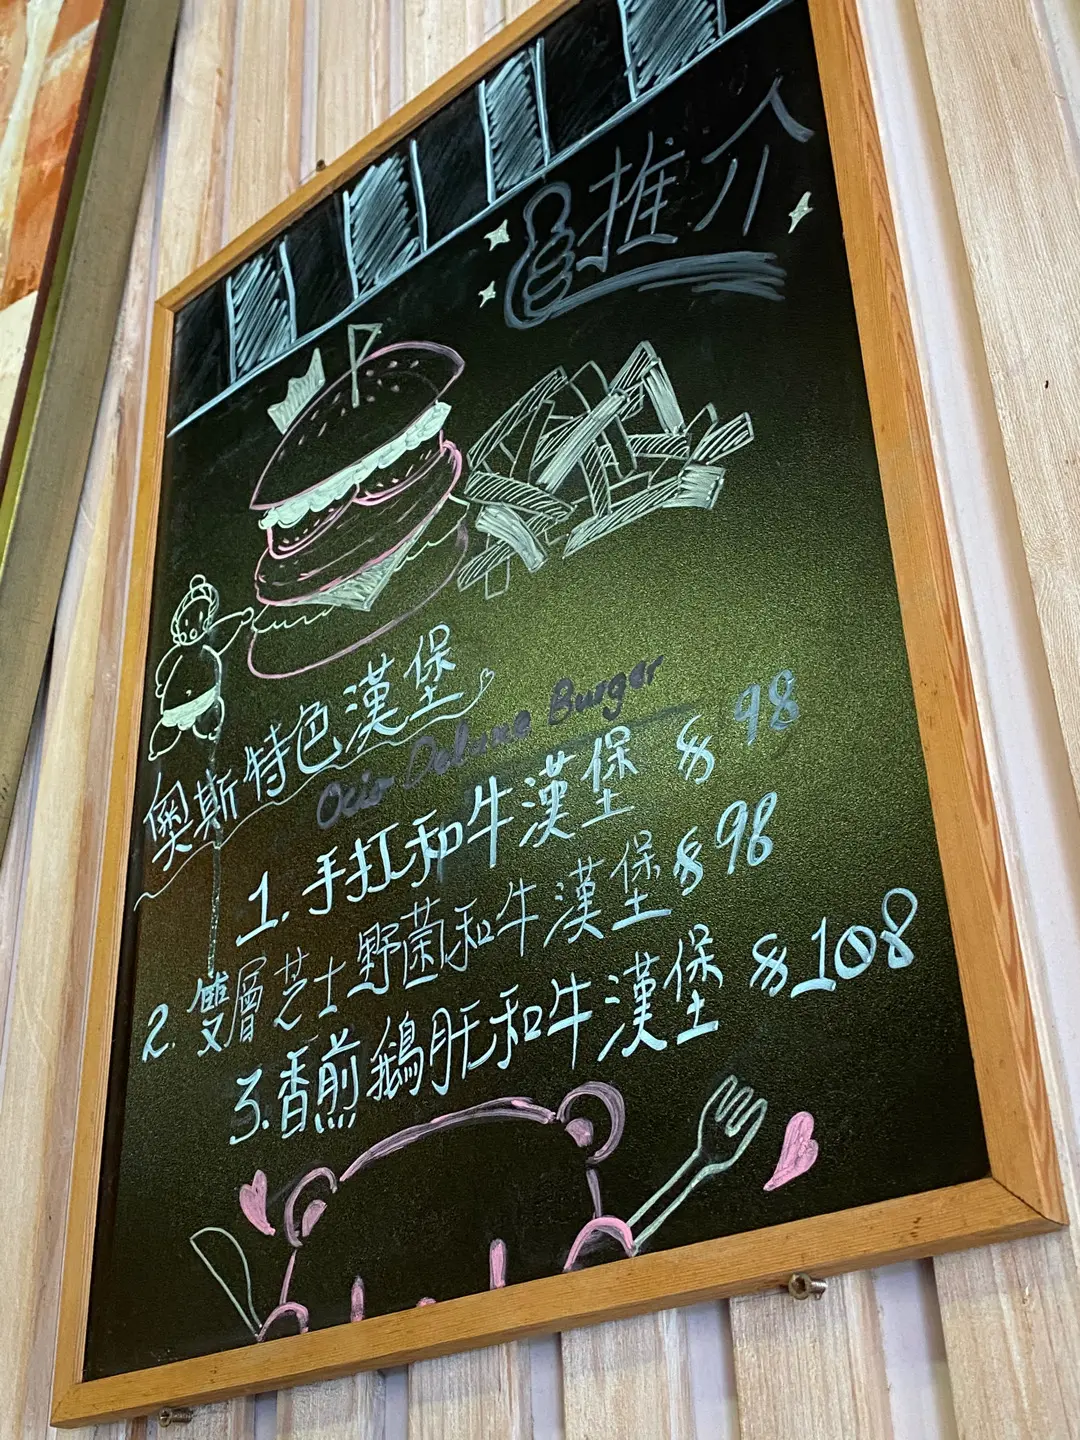 推介
奧斯特色漢堡
Ocio Deluxe Burger
1. 手打和牛漢堡 $98
2. 雙層芝士野菌和牛漢堡 $98
3. 香煎鵝肝和牛漢堡 $108